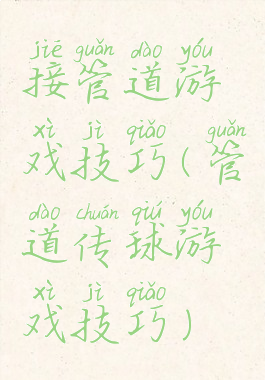 jiē guǎn dào yóu
接管道游
xì jì qiǎo guǎn
戏技巧(管
dào chuán qiú yóu
道传球游
xì jì qiǎo
戏技巧)